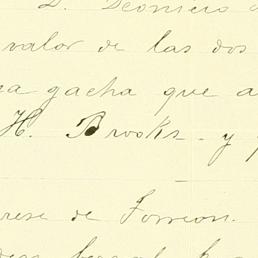 D. Dionicio
valor de las dos
gacha que a
H. Brooks - y
de Torreon.